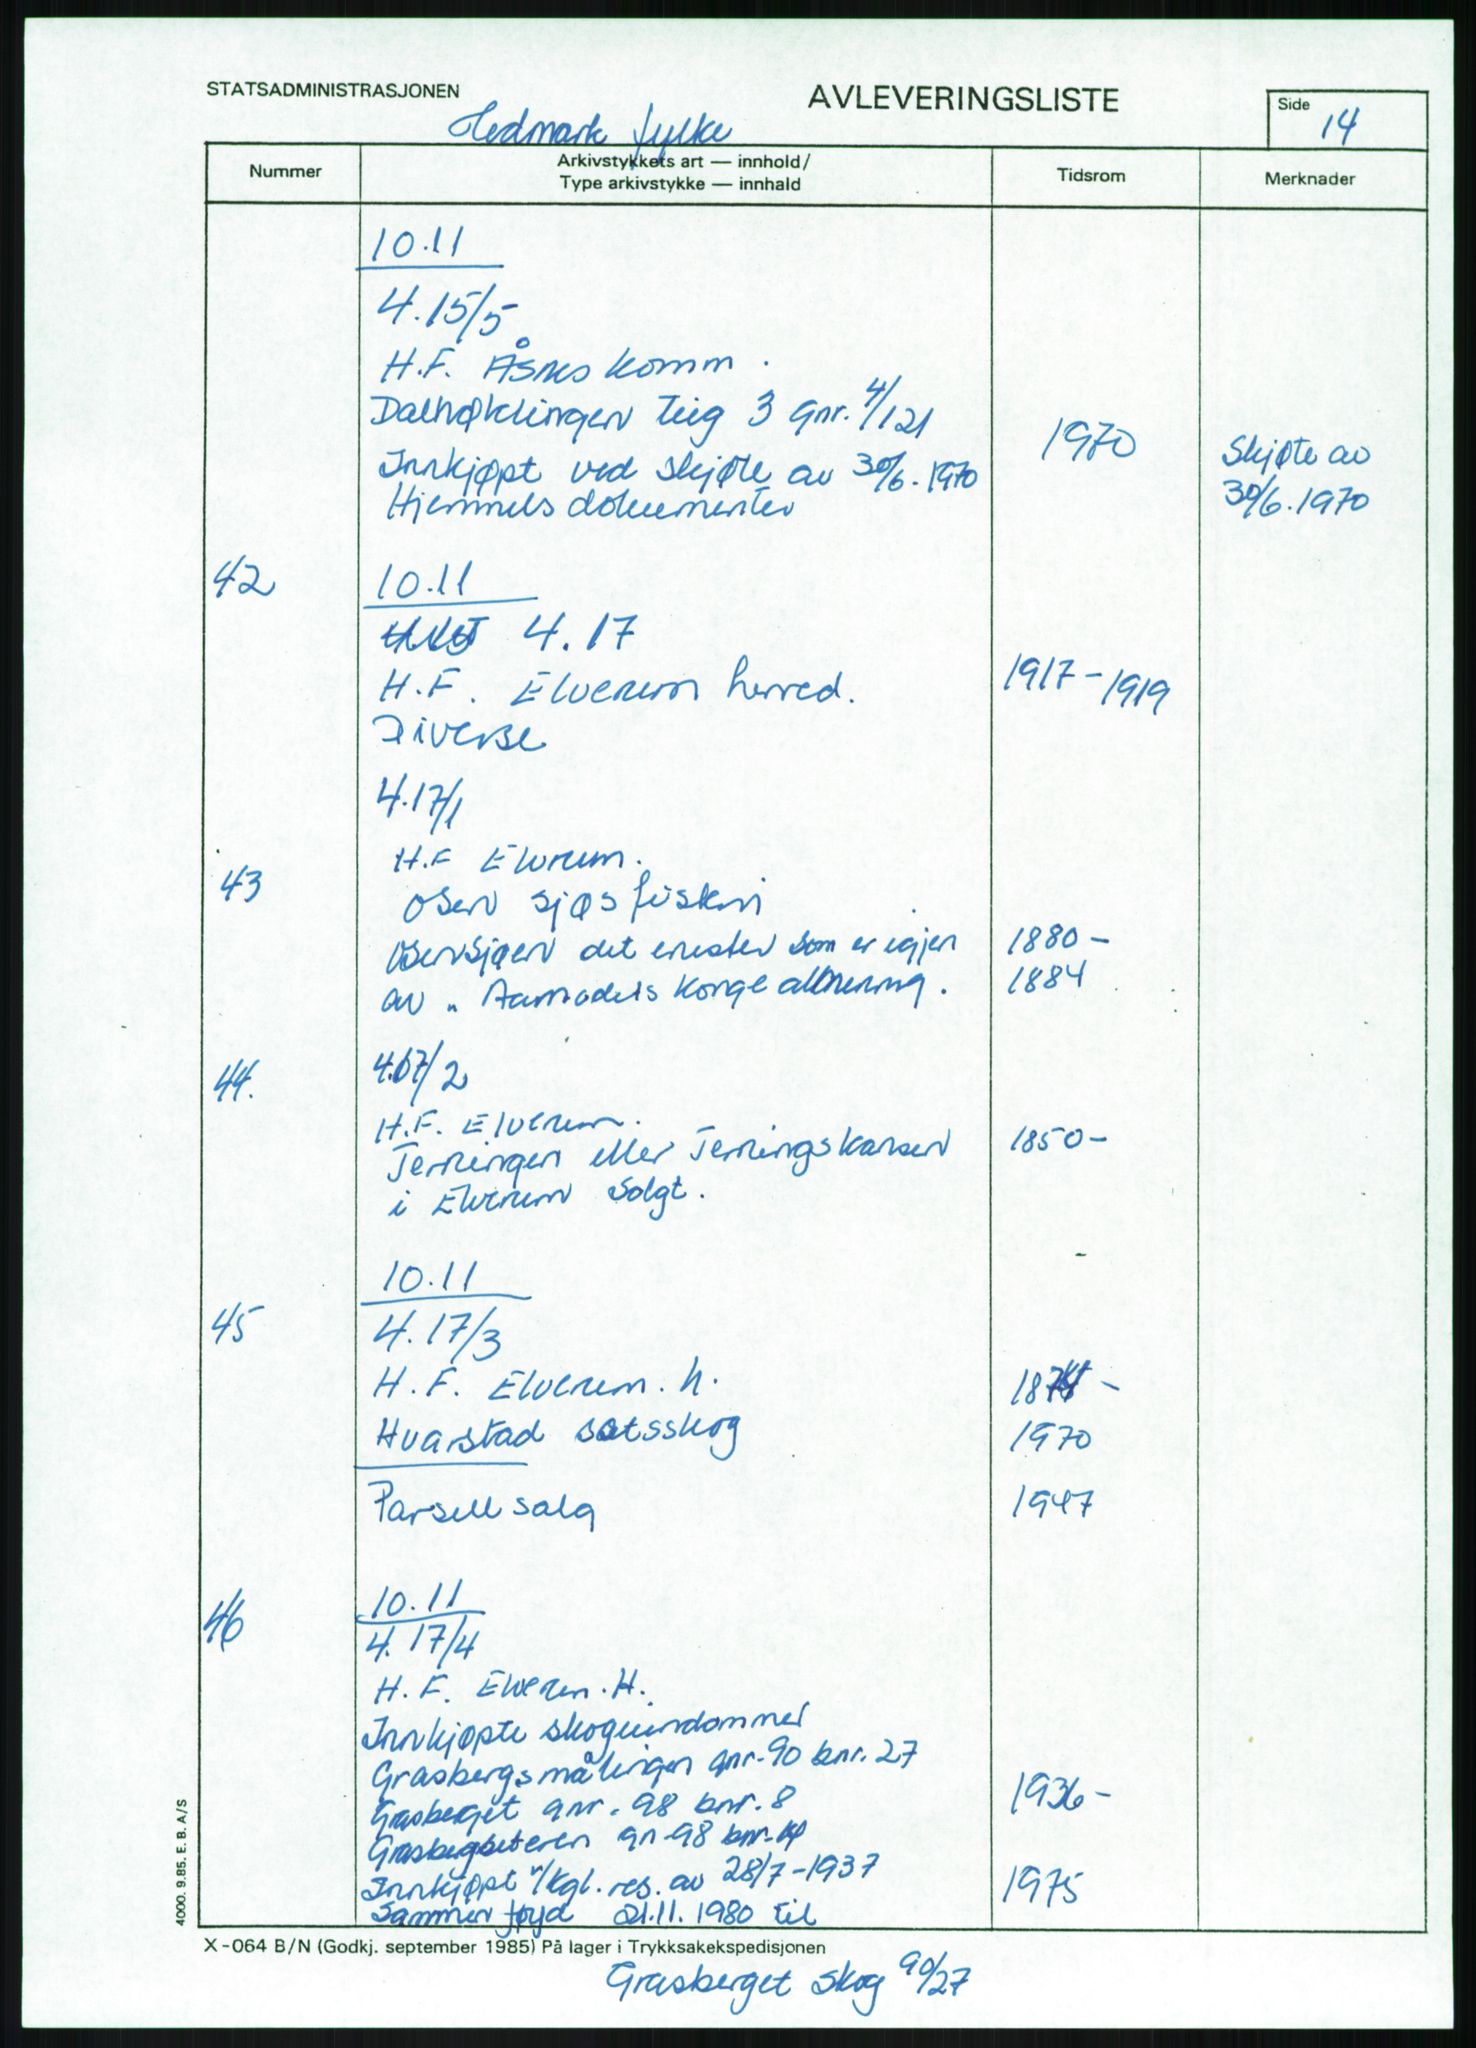 STATSADMINISTRASJONEN
AVLEVERINGSLISTE
Side
14
Hedmark fylke
Nummer
Arkivstykkets art — innhold/
Type arkivstykke — innhald
Tidsrom
Merknader
10.11
4.15/5
H.F. Åsnes komm.
Dalhøklingen teig 3 gnr. 4/121
1970
Innkjøpt ved skjøte av 30/6.1970
Skjøte av
Hjemmelsdokumenter
30/6.1970
42
10.11
4.17
H.F. Elverum herred.
1917-1919
Diverse
4.17/1
H.F Elverum.
43
Osen sjøs fiskeri
Osensjøen det eneste som er igjen
1880-
av "Aamodts Konge allmening.
1884
44.
4.17/2
H.F. Elverum.
Terningen eller Terningskansen
1850-
i Elverum solgt.
10.11
45
4.17/3
H.F. Elverum. h.
1874 -
Hvarstad satsskog
1970
Parsellsalg
1947
46
10.11
4.17/4
H.F. Elverum. H.
Innkjøpte skogeiendommer
Grasbergsmålingen gnr. 90 bnr. 27
Grasberget gnr. 98 bnr. 8
1936-
Grasbergseteren gn 98 bnr.
Innkjøpt v/kgl. res. av 28/7-1937
1975
Sammenføyd 21.11.1980 til
4000. 9.85. E. B. A/S
X-064 B/N (Godkj. september 1985) På lager i Trykksakekspedisjonen
Grasberget skog 90/27